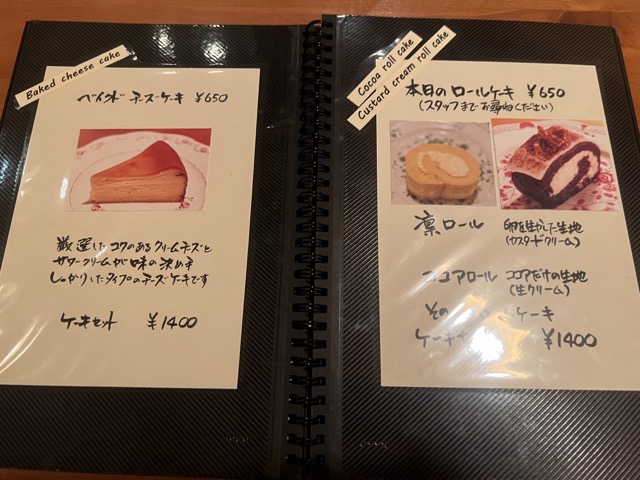 Baked cheese cake
ベイクド チーズケーキ ¥650
厳選したコクのあるクリームチーズと
サワークリームが味の決め手
しっかりしたタイプのチーズケーキです
ケーキセット ¥1400
Cocoa roll cake
Custard cream roll cake
本日のロールケーキ ¥650
(スタッフまでお尋ねください)
凛ロール 卵を生かした生地
(カスタードクリーム)
ココアロール ココアだけの生地
(生クリーム)
その ケーキ
ケーキ ¥1400